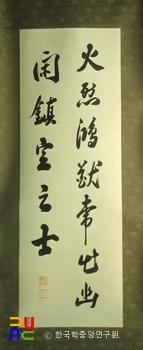 火烈鴻猷常出幽
閑鎮定之士
ⓒ 한국학중앙연구원